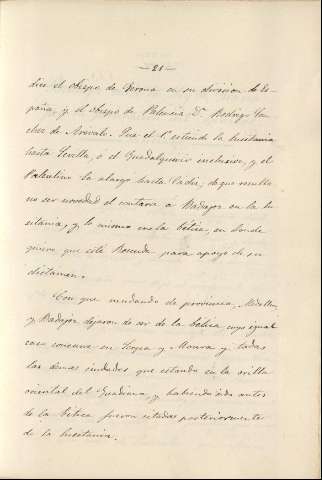 — 21 —
dice el obispo de Gerona en su division de Es-
paña, y el obispo de Palencia Dn. Rodrigo San-
chez de Arevalo. Pues el 1º estiende la Lusitania
hasta Sevilla, ó el Guadalquivir inclusive, y el
Palentino la alarga hasta Cadiz, de que resulta
no ser novedad el contarse á Badajoz en la Lu-
sitania, y lo mismo en la Bética, en donde
quiere que esté Resende para apoyo de su
dictamen.
Con que mudando de provincia, Medellin
y Badajoz dejaron de ser de la Bética cuyo igual
caso concurre en Serpa y Moura y todas
las demas ciudades que estando en la orilla
oriental del Guadiana, y habiendo sido antes
de la Bética fueron citadas posteriormente
de la Lusitania.